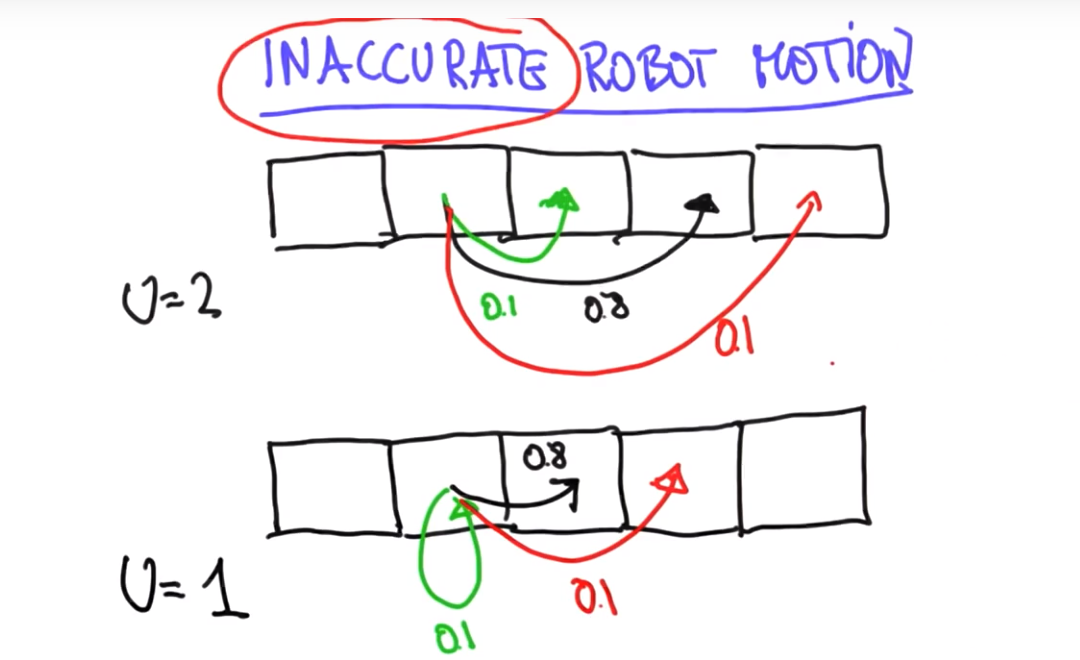 INACCURATE ROBOT MOTION
0.1 0.8 0.1
U=2
0.8
U=1
0.1
0.1